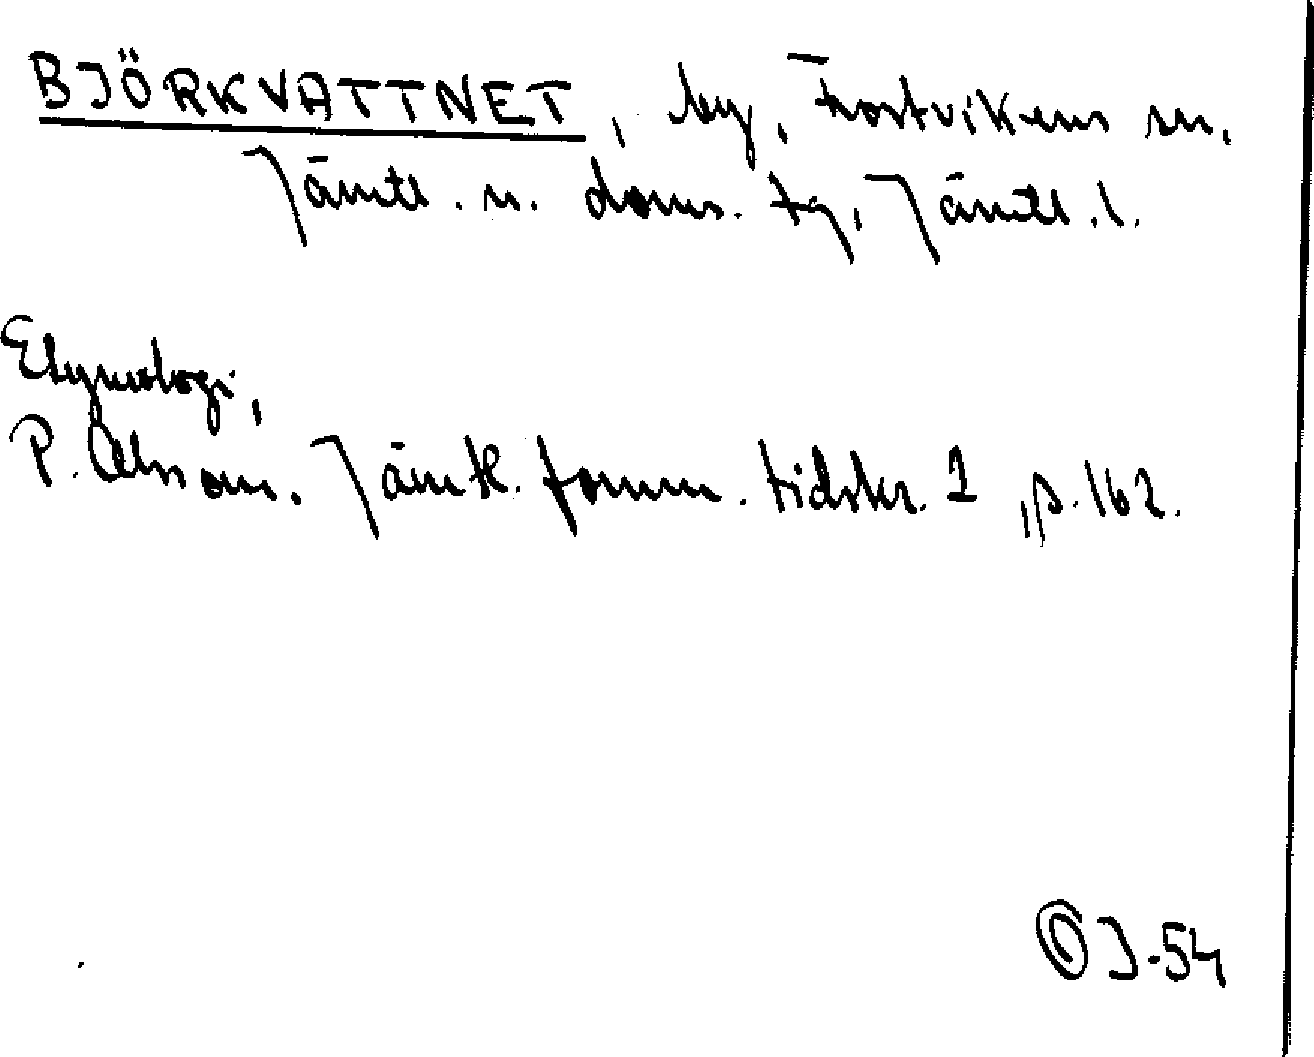 BJÖRKVATTNET, by, Frostvikens sn.
Jämtl. n. doms. tg, Jämtl. l.
Etymologi,
P. Olsson. Jämtl. fornm. tidskr. 1, s. 162.
J-54